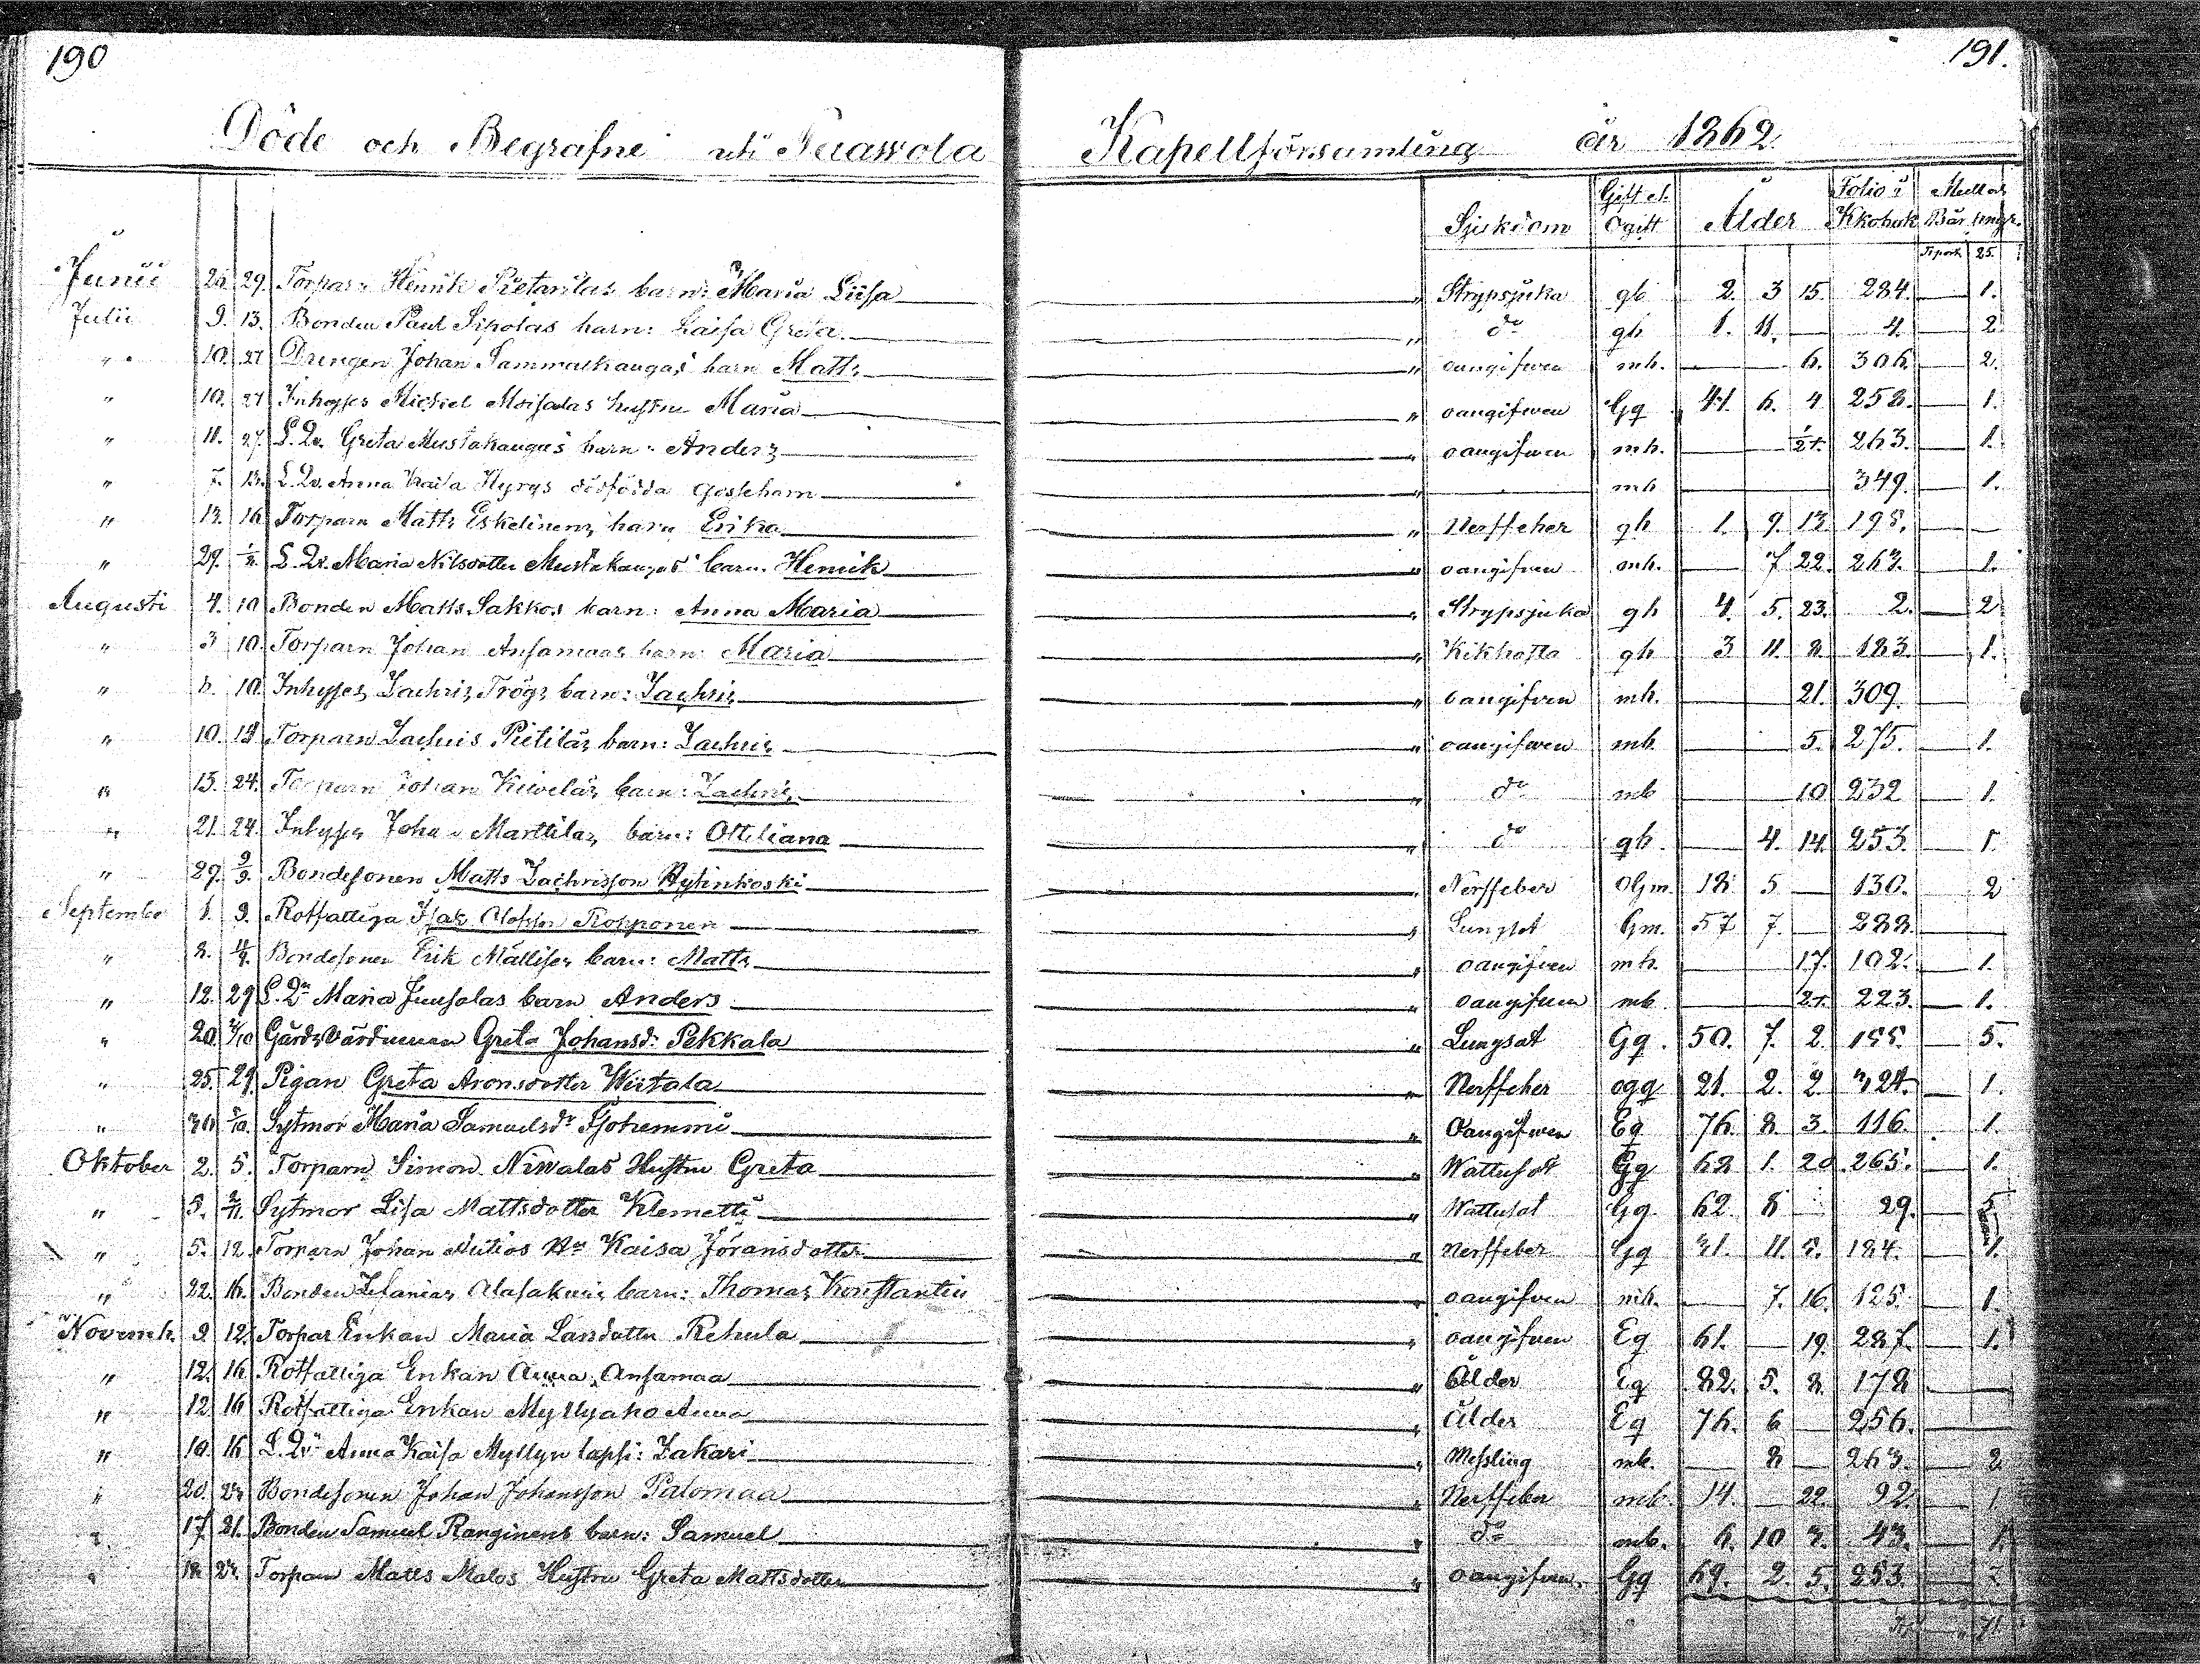 190
191.
Döde och Begrafne uti Kapellförsamling år 1862.
Sjukdom Gift el. Ogift Ålder Folio i Kkobok
Junii 29. Henrik barn: Maria Liisa " Strypsjuka gb 2. 3 15. 284. 1.
Julii 9. 13. Bonden Paul Sipolas barn: Kaisa Greta " do gb 1. 11. 4. 2
" 10. 27 Drengen Johan barn Matts " oangifwen mb. 6. 306. 2.
" 10. 27 Inhyses Michel hustru Maria " oangifwen Gq 6. 4 258. 1.
" 11. 27. L. Qv. Greta Mustakangas barn: Anders " oangifwen mb. 263. 1.
" 7. 13. L. Qv. Anna Kaisa Hyrys dödfödda gossebarn " mb 349. 1.
" 13. 16 Torparn Matts Eskelinens barn Erika " Nerffeber gb 1. 9. 13. 195.
" 29. L. Qv. Maria Nilsdotter Mustakangas barn. Henrik " oangifwen mb. 7 22. 263. 1.
Augusti 4. 10 Bonden Matts Sakkos barn: Anna Maria " Strypsjuka gb 4. 5. 23. 2. 2
" 3 10. Torparn Johan Ansamaas barn: Maria " Kikhosta gb 3 11. 8 183. 1.
" 10. Inhyses Zachris Trögs barn: Zachris " oangifven mb. 21. 309.
" 10. Torparn Zachris Pietiläs barn: Zachris " oangifwen mb. 5. 275. 1.
" 13. 24. Torparn Johan Kiweläs barn: Zachris " do mb 10 232 1.
" 21. 24. Inhyses Johan Marttilas barn: Ottiliana " do gb. 4. 14. 253. 1.
" 29. Bondesonen Matts Zachrisson Hylinkoski " Nerffeber Ogm. 18 5 130. 2
September 1. 9. Rotfattiga Isak Olofsson Ropponen " Lungsot Gm. 57 7. 288.
" 8. Bondesonen Erik barn: Matts " oangifwen mb. 17. 102. 1.
" 12. 29 L. Qn Maria Juusolas barn Anders " oangifwen mb 223. 1.
" 20. Gårds Värdinnan Greta Johansd: Pekkala " Lungsot Gq. 50. 7. 2. 155. 5.
" 25. 29. Pigan Greta Aronsdotter Wiitala " Nerffeber ogq 21. 2. 2. 324. 1.
" 30 Sytmor Maria Samuelsdr " Oangifwen Eq 76. 8 3. 116. 1.
Oktober 2. 5. Torparn Simon Niwalas Hustru Greta " Wattusot Gq 62 1. 20. 265. 1.
" 5. Sytmor Lisa Mattsdotter Klemetti " Wattusot Gq. 62. 8 29. 5
" 5. 12. Torparn Johan Autios Hu Kaisa Jöransdotter " Nerffeber Gq 31. 11. 184. 1.
" 22. Bonden Alasakuis barn: Thomas Konstantin " oangifven mb. 7. 16. 125. 1.
Novemb. 9. 12. Torpar Enkan Maria Larsdotter Rehula " oangifwen Eq 61. 19. 287. 1.
" 12. 16 Rotfattiga Enkan Anna Ansamaa " Ålder Eq 82. 5. 8. 178
" 12 16 Rotfattiga Enkan Myllyaho Anna " Ålder Eq 76. 6 256.
" 10. 16 L. Qv Anna Kaisa Myllyn lapsi: Zakari " Messling mb. 8 263. 2
" 20. 23. Bondesonen Johan Johansson Palomaa " Nerffeber mb. 14. 22. 92. 1
" 17. 21. Bonden Samuel Ranginens barn: Samuel " do mb. 6. 10 3. 43. 1.
" 18. 23. Torparn Matts Malos Hustru Greta Mattsdotter " oangifwen. Gq 69. 2. 5. 253.
71.